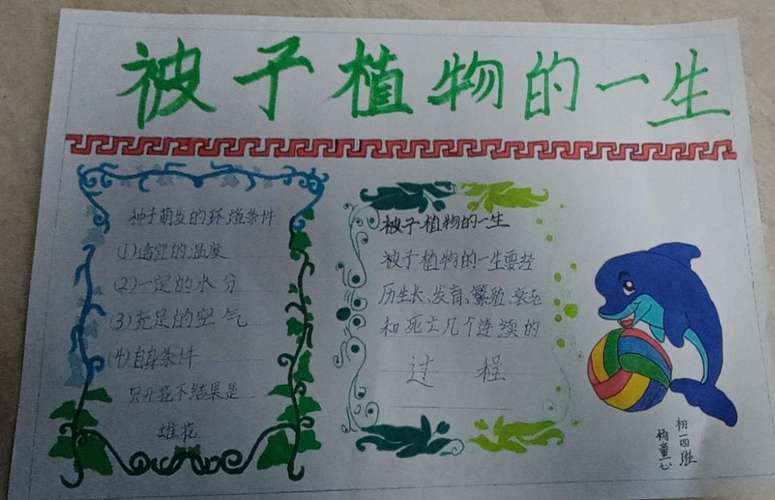 被子植物的一生
种子萌发的环境条件
(1)适宜的温度
(2)一定的水分
(3)充足的空气
(4)自身条件
只开花不结果是
雄花
被子植物的一生
被子植物的一生要经
历生长、发育、繁殖、衰老
和死亡几个连续的
过程
初一四班
童心